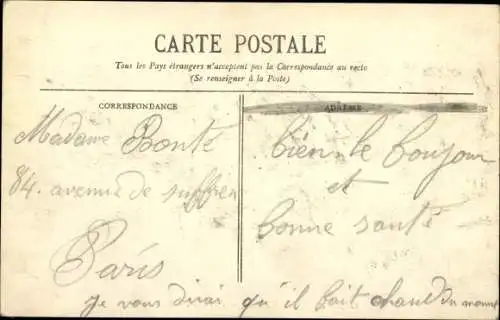 CARTE POSTALE
Tous les Pays étrangers n'acceptent pas la Correspondance au recto
(Se renseigner à la Poste)
CORRESPONDANCE
ADRESSE
Madame Bonté
84. avenue de suffren
Paris
bien le bonjour
et
bonne santé
je vous dirai qu'il fait chaud